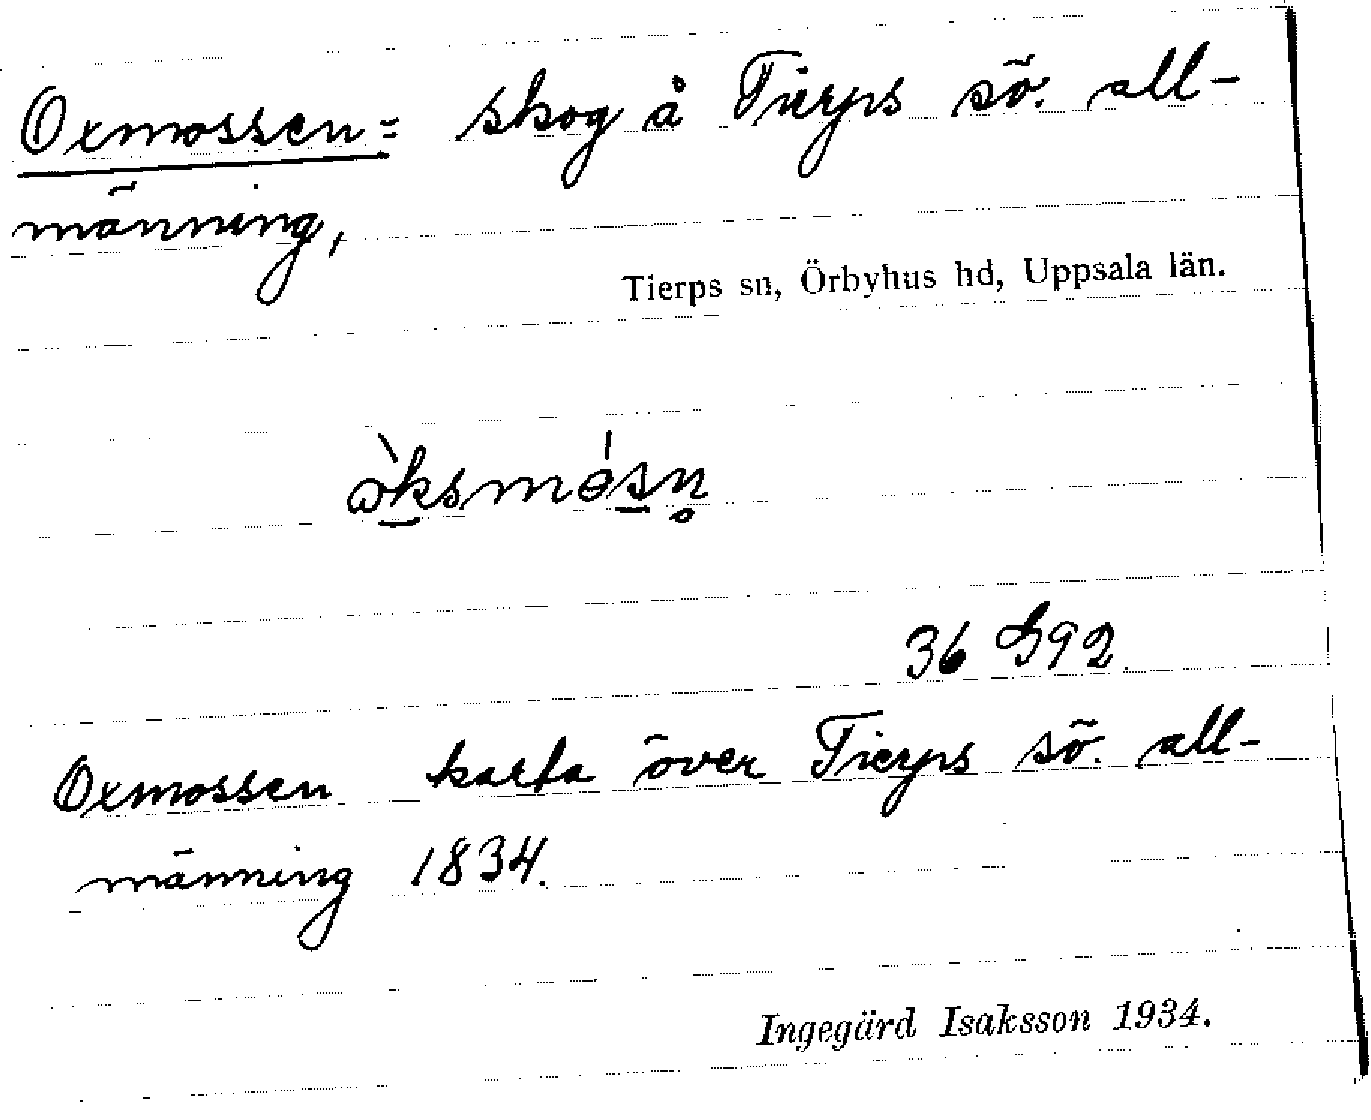 Oxmossen = skog å Tierps sö. all-
männing,
Tierps sn, Örbyhus hd, Uppsala län.
ɷ̀ksmǿsn̥
36 G92
Oxmossen karta över Tierps sö. all-
männing 1834.
Ingegärd Isaksson 1934.